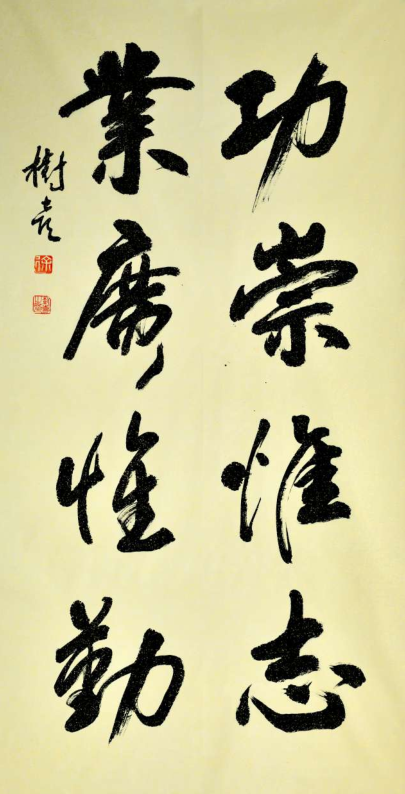 功崇惟志
業廣惟勤
樹
徐